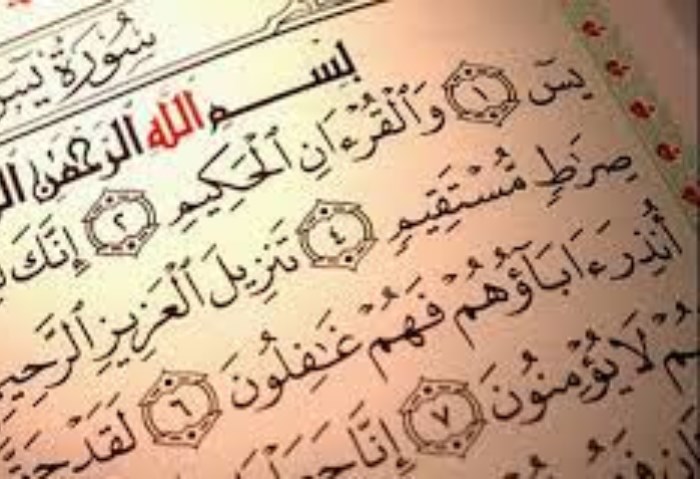 سُورَةُ يسٓ
بِسْمِ اللَّهِ الرَّحْمَٰنِ
يسٓ ١ وَٱلْقُرْءَانِ ٱلْحَكِيمِ ٢ إِنَّكَ
صِرَٰطٍ مُّسْتَقِيمٍ ٤ تَنزِيلَ ٱلْعَزِيزِ ٱلرَّحِيمِ
أُنذِرَ ءَابَآؤُهُمْ فَهُمْ غَٰفِلُونَ ٦ لَقَدْ
لَا يُؤْمِنُونَ ٧ إِنَّا جَعَلْنَا